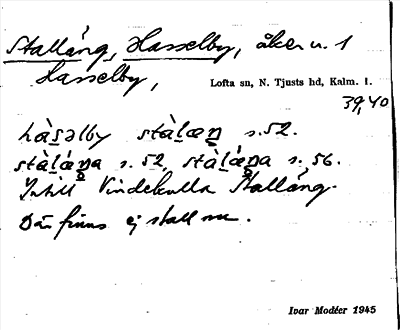 Stalläng, Hasselby, åker u. 1
Hasselby,
Lofta sn, N. Tjusts hd, Kalm. l.
39,40
hàs̲əlby stàl̲æŋ s. 52.
stàl̲áŋa s. 52, stàl̲áŋa s. 56.
Intill Vindekulla Stalläng.
Där finns ej stall nu.
Ivar Modéer 1945